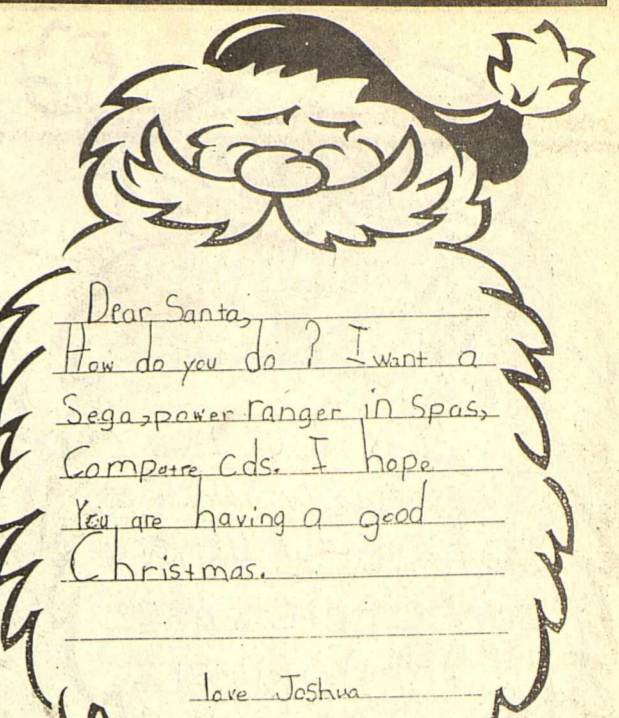 Dear Santa,
How do you do? I want a
Sega, power ranger in Spas,
Compatre Cds. I hope
You are having a good
Christmas.
love Joshua